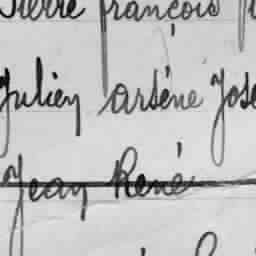 Pierre françois
Julien arsène Jose
Jean René